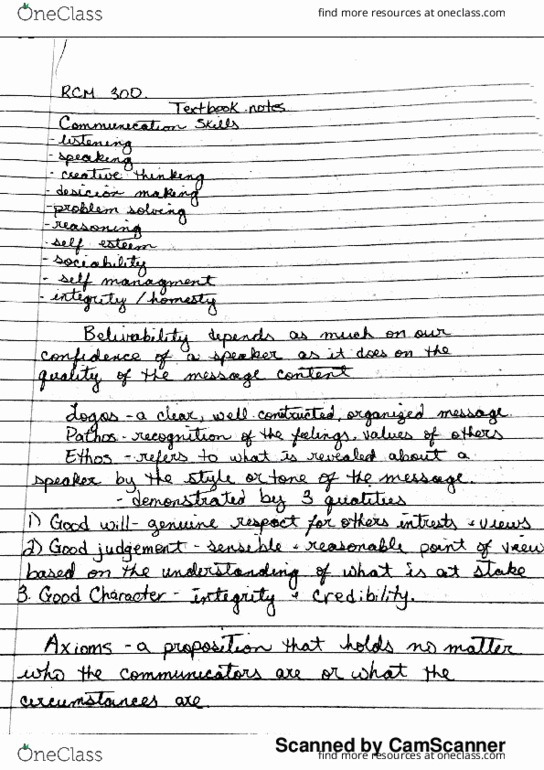 OneClass
find more resources at oneclass.com
RCM 300.
Textbook notes
Communication Skills
- listening
- speaking
- creative thinking
- desicion making
- problem solving
- reasoning
- self esteem
- sociability
- self managment
- integrity / homesty
Belivability depends as much on our
confidence of a speaker as it does on the
quality of the message content
Logos - a clear, well constructed, organized message
Pathos - recognition of the feelings, values of others
Ethos - refers to what is revealed about a
speaker by the style or tone of the message.
- demonstrated by 3 qualities
1) Good will - genuine respect for others intrests + views
2) Good judgement - sensible + reasonable point of view
based on the understanding of what is at stake
3. Good Character - integrity + credibility.
Axioms - a proposition that holds no matter
who the communicators are or what the
circumstances are.
Scanned by CamScanner
OneClass
find more resources at oneclass.com